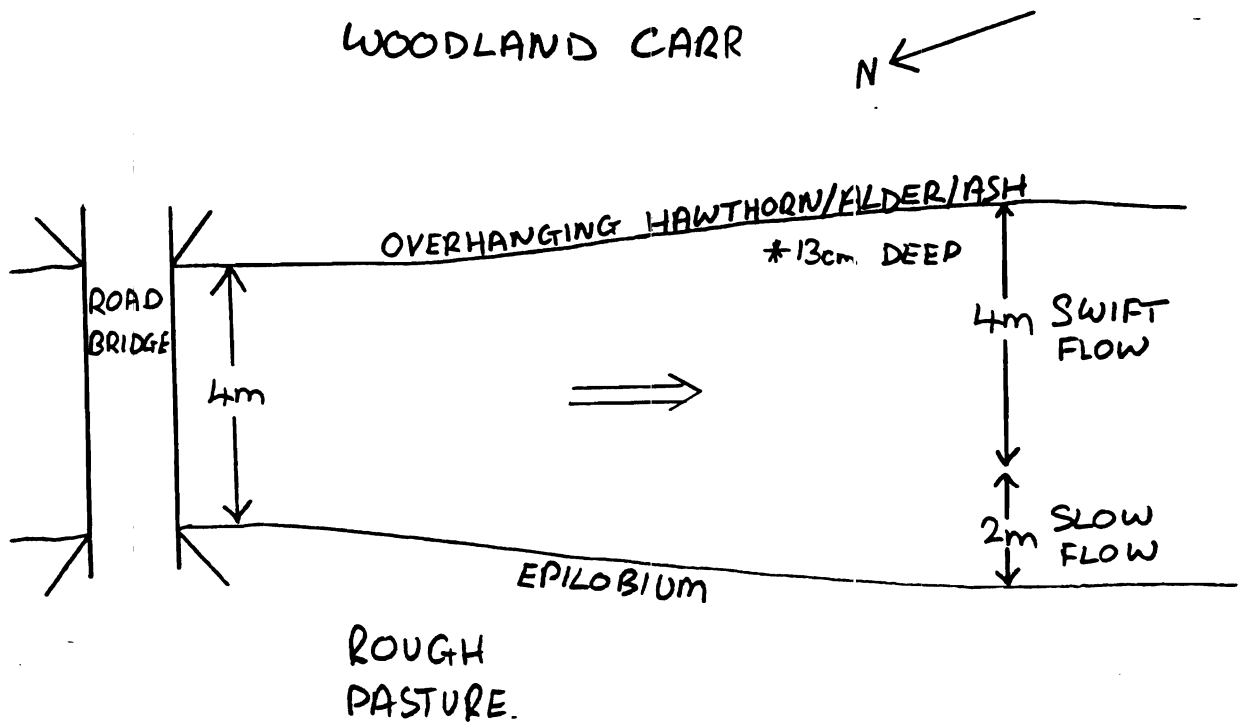 WOODLAND CARR
N
OVERHANGING HAWTHORN/ELDER/ASH
*13cm. DEEP
ROAD
BRIDGE
4m
4m SWIFT
FLOW
2m SLOW
FLOW
EPILOBIUM
ROUGH
PASTURE.